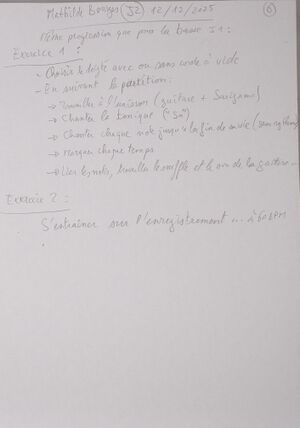 Mathilde Bourges (J2) 12/12/2025 6
Même progression que pour la basse J1 :
Exercice 1 :
- Choisir le doigté avec ou sans corde à vide
- En suivant la partition :
→ Travailler à l'unisson (guitare + Sarigama)
→ Chanter la tonique ("Sa")
→ Chanter chaque note jusqu'à la fin de (sans rythme)
→ Marquer chaque temps
→ Lier les notes, travailler le souffle et le son de la guitare...
Exercice 2 :
S'entraîner sur l'enregistrement ... à 60 BPM